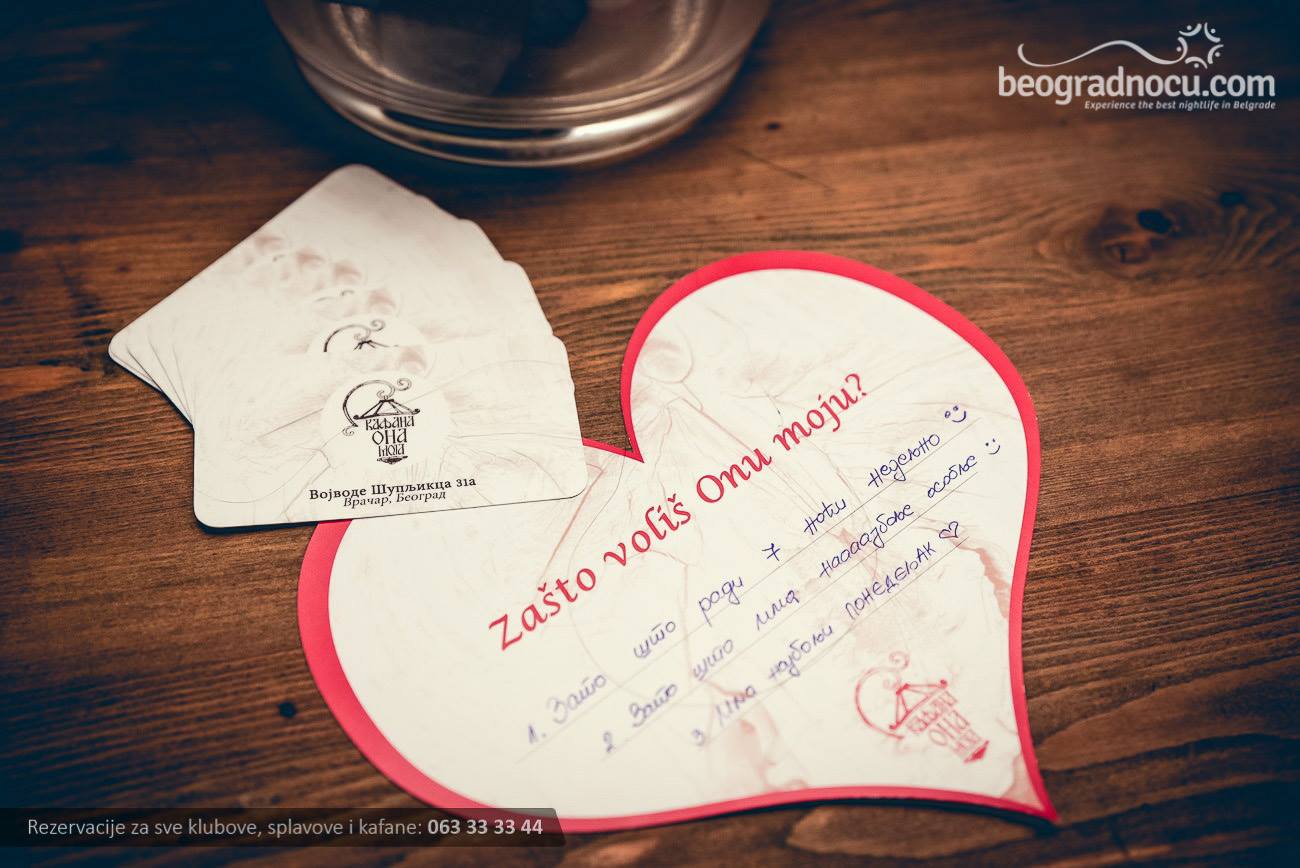 beogradnocu.com
Experience the best nightlife in Belgrade
КАФАНА
ОНА
МОЈА
Војводе Шупљикца 31а
Врачар, Београд
Zašto voliš Onu moju?
1. Зато што ради 7 ноћи недељно
2 Зато што има нааааjбоље особље
3 Има најбољи ПОНЕДЕЉАК
КАФАНА
ОНА
МОЈА
Rezervacije za sve klubove, splavove i kafane: 063 33 33 44